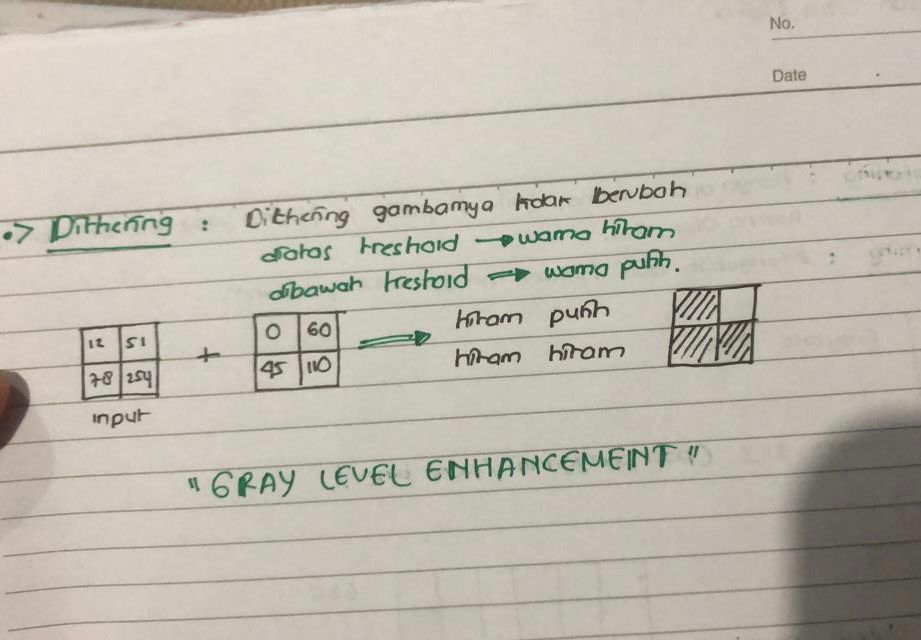 No.
Date
•> Dithering : Dithering gambarnya tidak berubah
diatas treshold → warna hitam
dibawah treshold → warna putih.
12 51
78 254
input
+
0 60
45 110
⇒
hitam putih
hitam hitam
"GRAY LEVEL ENHANCEMENT"